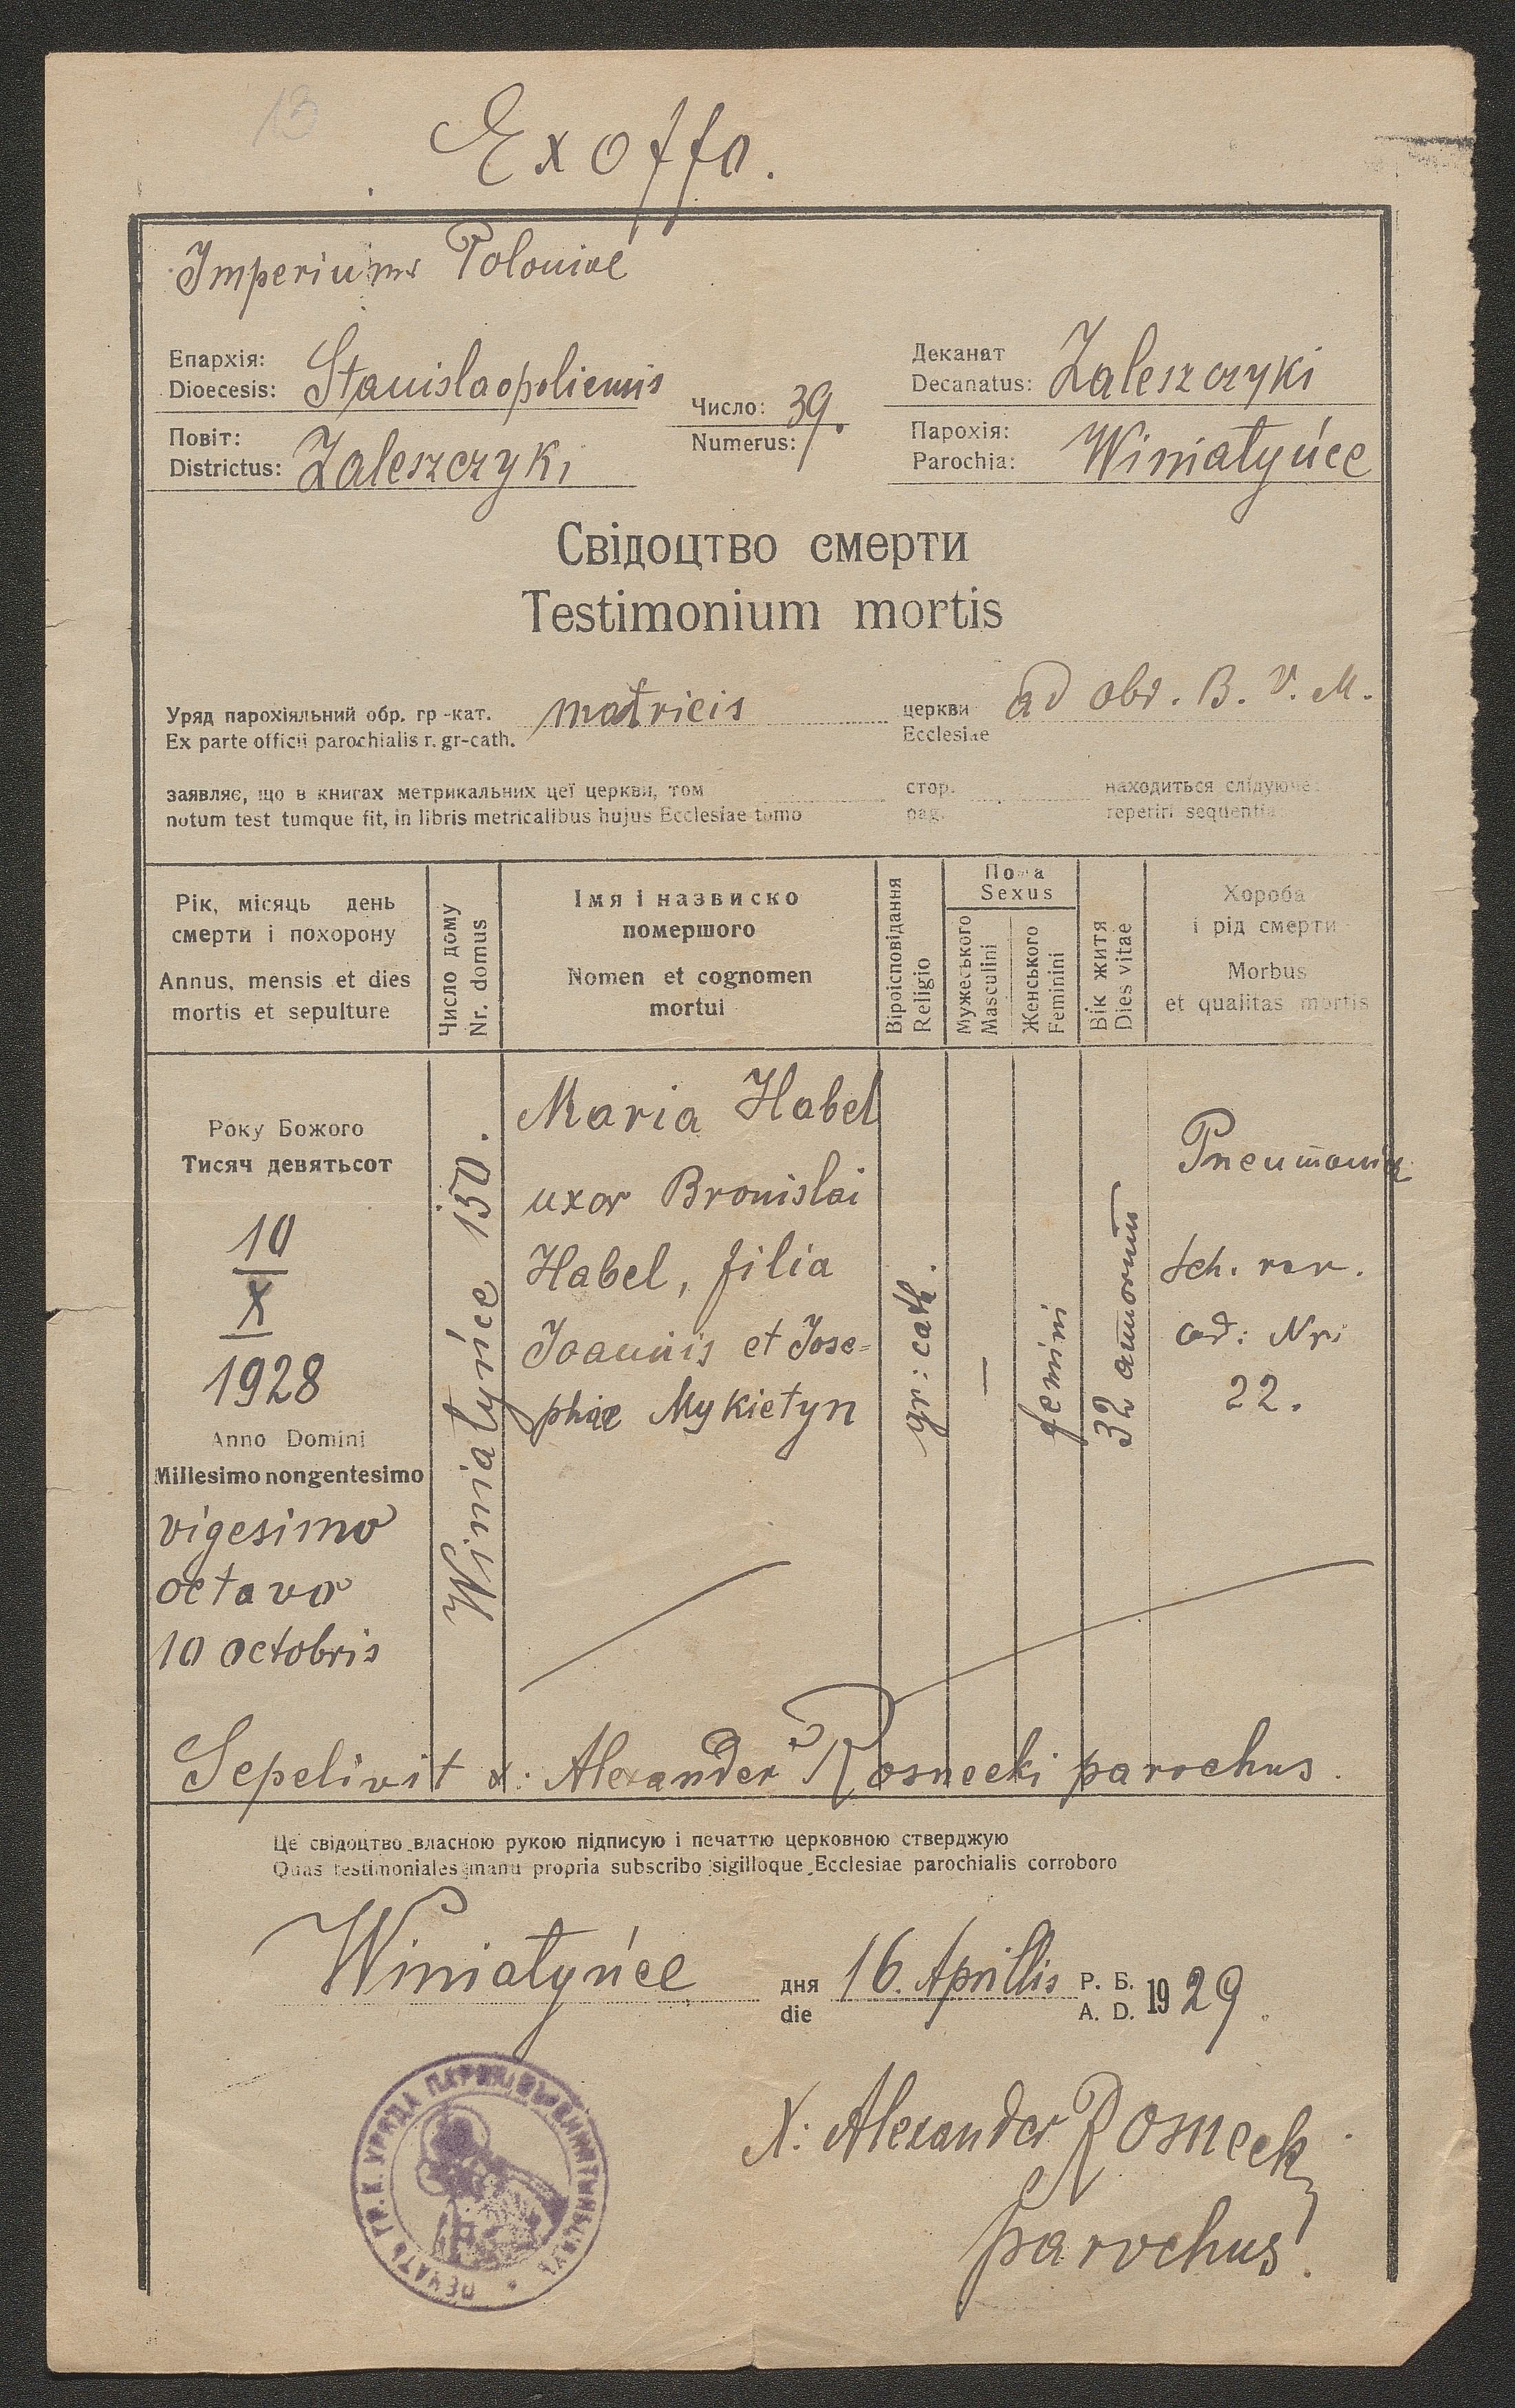 13
Exoffo.
Imperium Poloniae
Епархія:
Dioecesis: Stanislaopoliensis
Число: 39.
Numerus:
Деканат
Decanatus: Zaleszczyki
Повіт:
Districtus: Zaleszczyki
Парохія:
Parochia: Winiatyńce
Свідоцтво смерти
Testimonium mortis
Уряд парохіяльний обр. гр-кат. matricis церкви ad obd. B. V. M.
Ex parte officii parochialis r. gr-cath. Ecclesiae
заявляє, що в книгах метрикальних цеї церкви, том стор. находиться слідуюче:
notum test tumque fit, in libris metricalibus hujus Ecclesiae tomo pag. reperiri sequentia
Рік, місяць день
смерти і похорону
Annus, mensis et dies
mortis et sepulture
Число дому
Nr. domus
Імя і назвиско
помершого
Nomen et cognomen
mortui
Віроісповідання
Religio
Пола
Sexus
Мужеського
Masculini
Женського
Feminini
Вік житя
Dies vitae
Хороба
і рід смерти
Morbus
et qualitas mortis
Року Божого
Тисяч девятьсот
10
X
1928
Anno Domini
Millesimo nongentesimo
vigesimo
octavo
10 octobris
Winiatyńce 150.
Maria Habel
uxor Bronislai
Habel, filia
Joannis et Jose=
phae Mykietyn
gr: cath.
—
femini
32 annorum
Pneumonia
sch. rer.
ad: Nr:
22.
Sepelivit x: Alexander Rosnecki parochus.
Це свідоцтво власною рукою підписую і печаттю церковною стверджую
Quas testimoniales manu propria subscribo sigilloque Ecclesiae parochialis corroboro
Winiatyńce дня 16. Aprillis Р. Б. 1929.
die A. D.
X: Alexander Rosnecki
parochus.
ПЕЧАТЬ ГР. К. УРЯДА